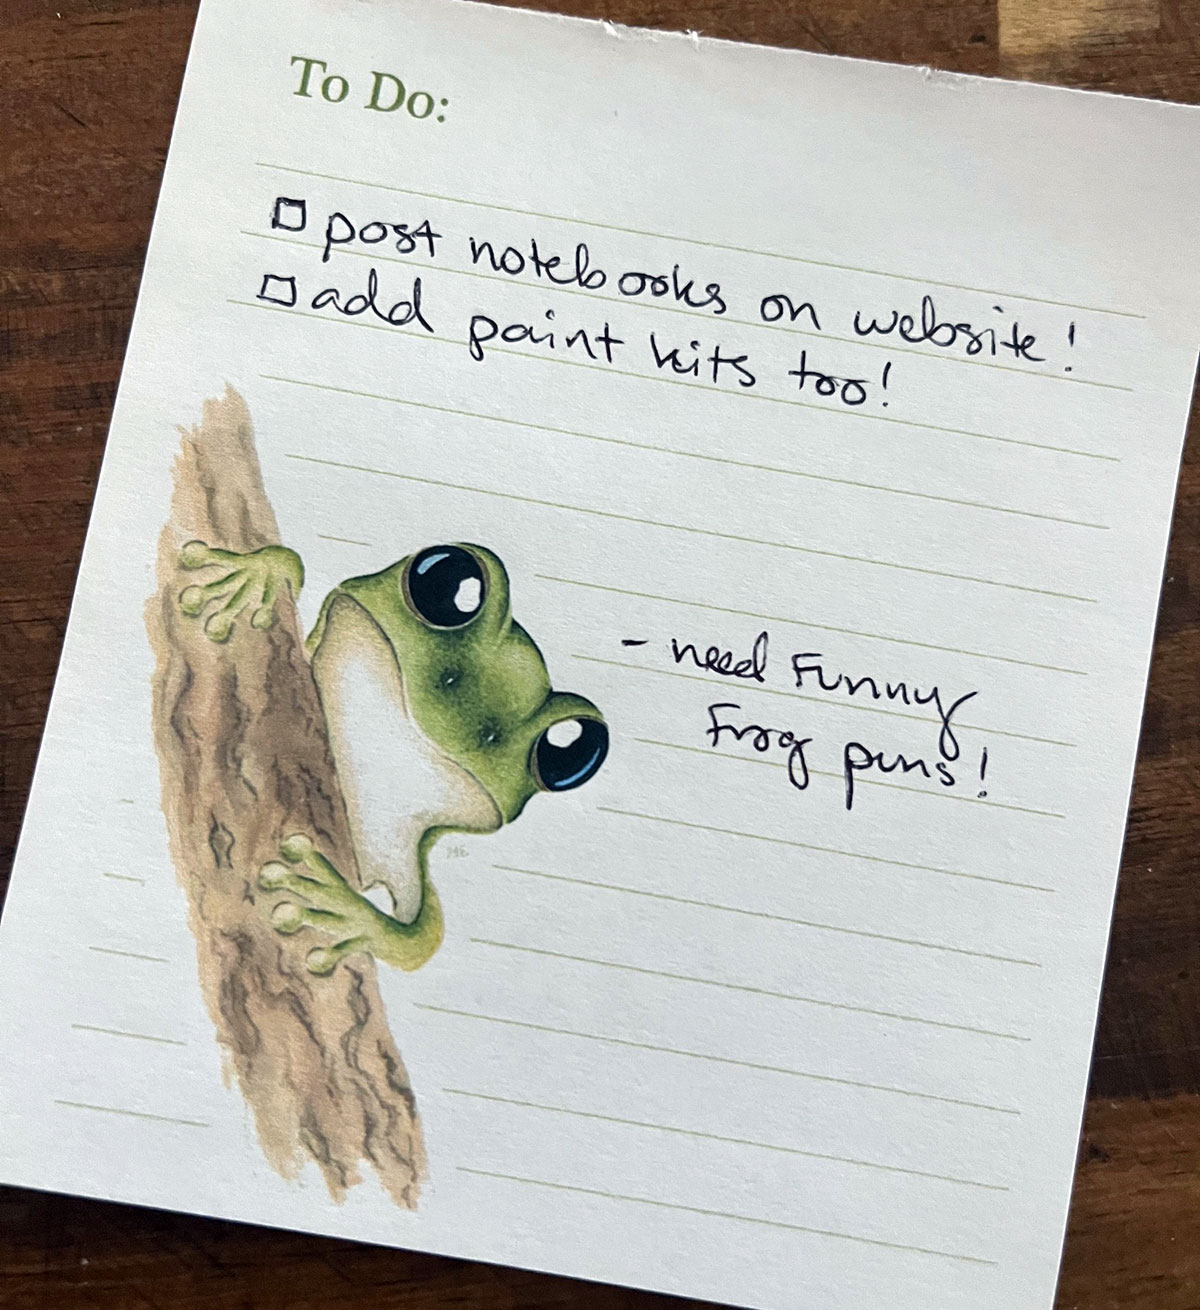 To Do:
post notebooks on website!
add paint kits too!
- need Funny
Frog pins!